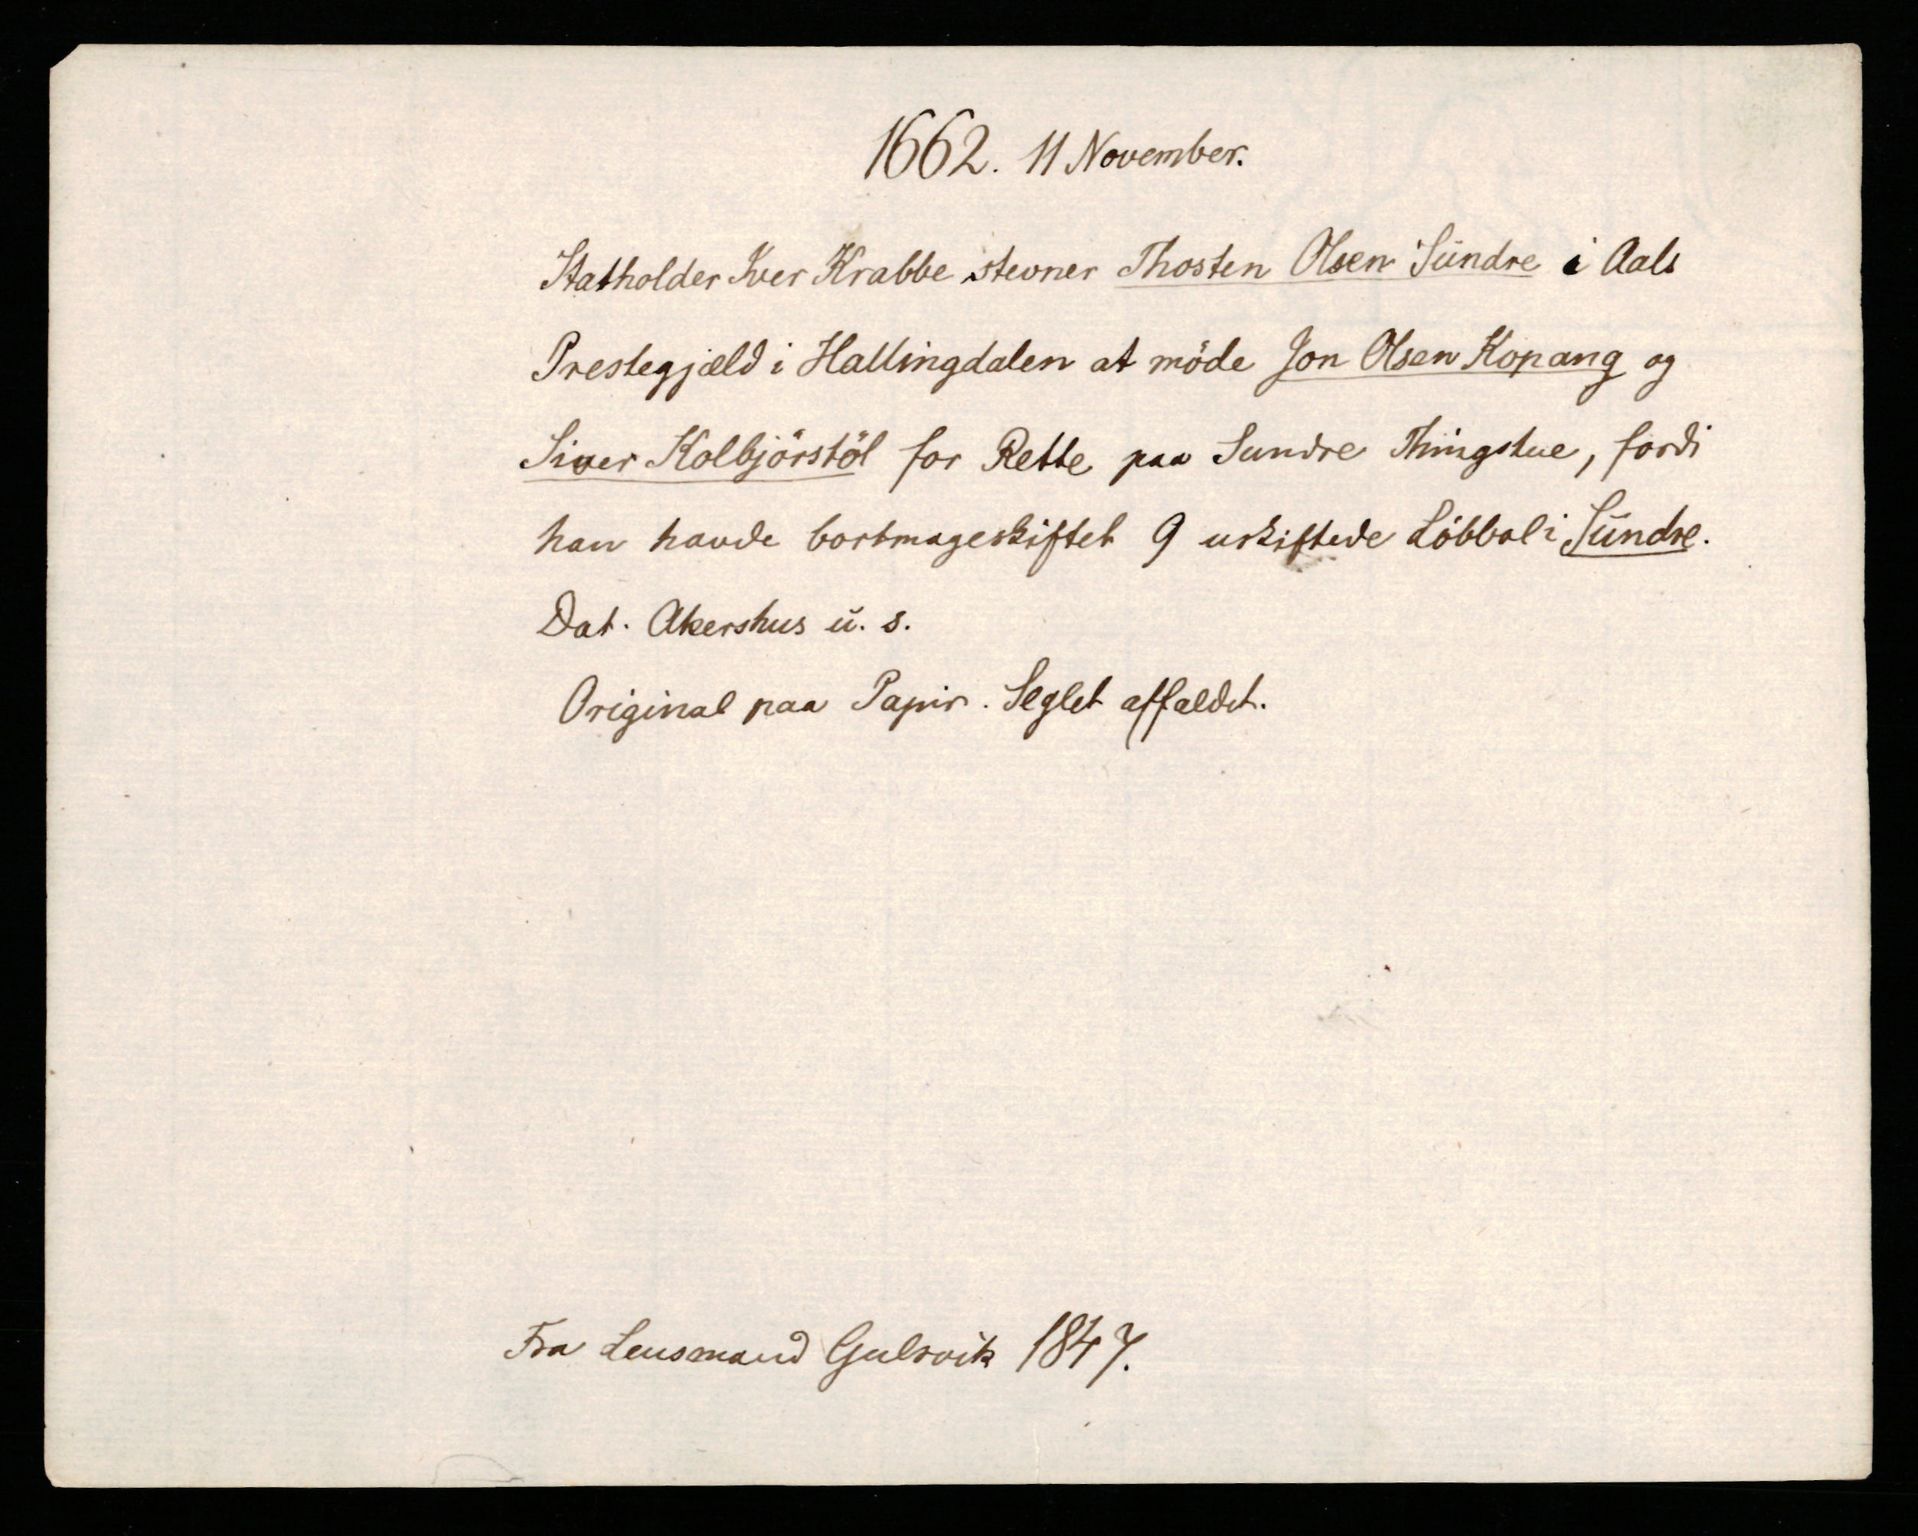 1662. 11 November.
Statholder Iver Krabbe stevner Thosten Olsen Sündre i Aals
Prestegjæld i Hallingdalen at möde Jon Olsen Kopang og
Siver Kolbjörstöl for Rette paa Sundre Thingstue, fordi
han havde bortmageskiftet 9 uskiftede Löbbol i Sündre.
Dat. Akershus ü. s.
Original paa Papir. Seglet affaldet.
Fra Lensmand Gulsvik 1847.